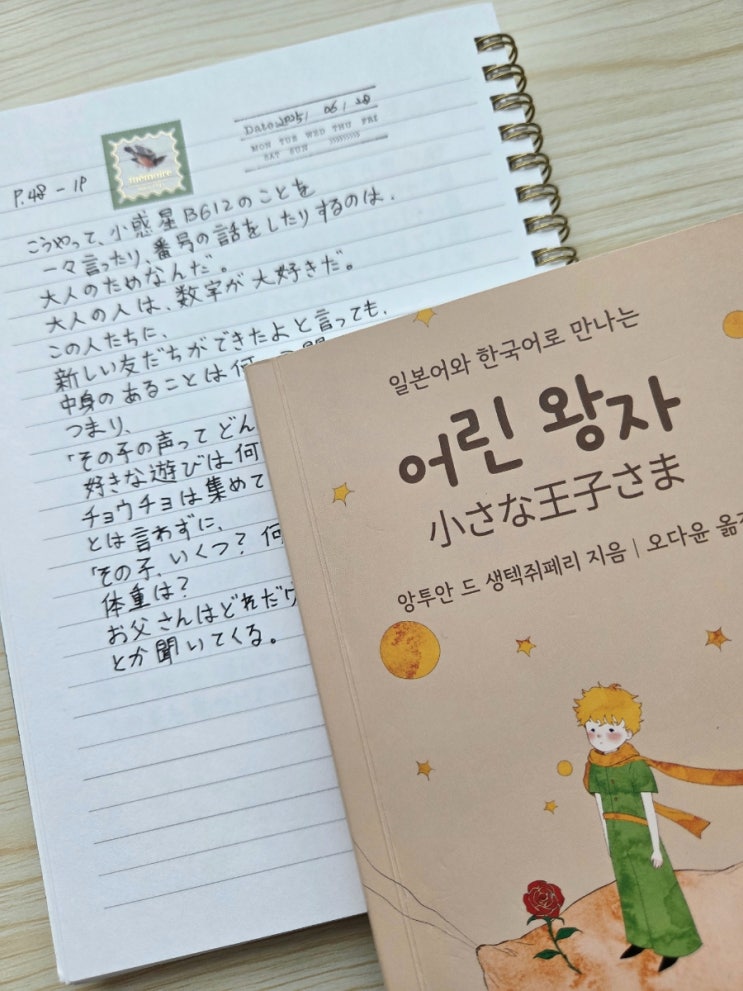 Date 2025/ 06/ 28
MON TUE WED THU FRI
SAT SUN
mémoire
P.48 - 19
こうやって、小惑星B612のことを
一々言ったり、番号の話をしたりするのは、
大人のためなんだ。
大人の人は、数字が大好きだ。
この人たちに、
新しい友だちができたよと言っても、
中身のあることは何
つまり、
「その子の声ってどん
好きな遊びは何
チョウチョは集めて
とは言わずに、
「その子、いくつ? 何
体重は?
お父さんはどれだけ
とか聞いてくる。
일본어와 한국어로 만나는
어린 왕자
小さな王子さま
앙투안 드 생텍쥐페리 지음 | 오다윤 옮